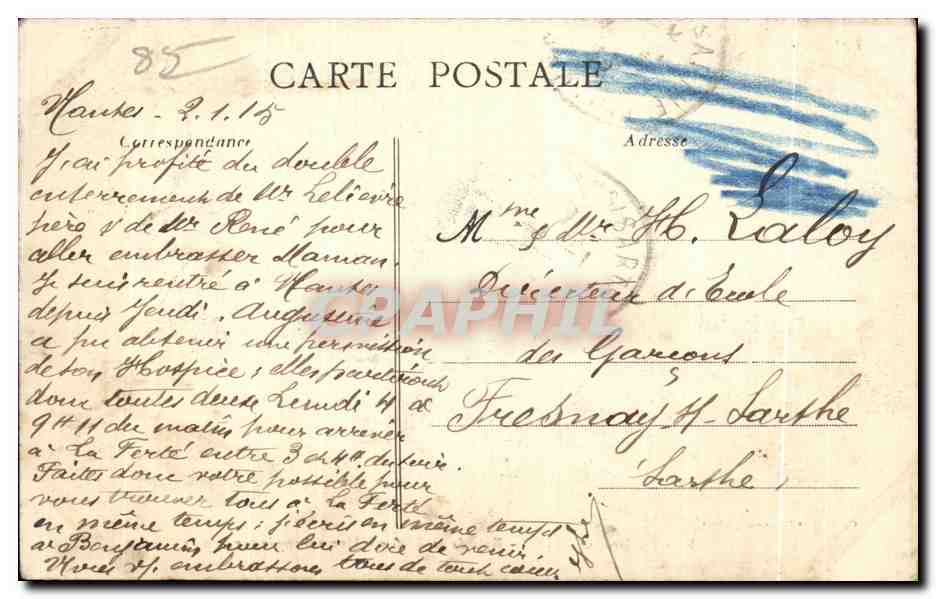 85
CARTE POSTALE
Nantes - 2.1.15
Correspondance
Adresse
J'ai profité du double
enterrement de Mr Lelièvre
père & de Mr René pour
aller embrasser Maman.
Je suis rentré à Nantes
depuis Jeudi. Augustine
a pu obtenir une permission
de son Hospice; elles partiront
donc toutes deux Lundi 4 à
9H 11 du matin pour arriver
à La Ferté entre 3 et 4H. du soir.
Faites donc votre possible pour
vous trouver tous à La Ferté
en même temps; j'écris en même temps
à Benjamin pour lui dire de venir.
Vous embrassons tous de tout cœur
Mme & Mr H. Laloy
Directeur d'Ecole
des Garçons
Fresnay s/ Sarthe
Sarthe
CPAPHIL